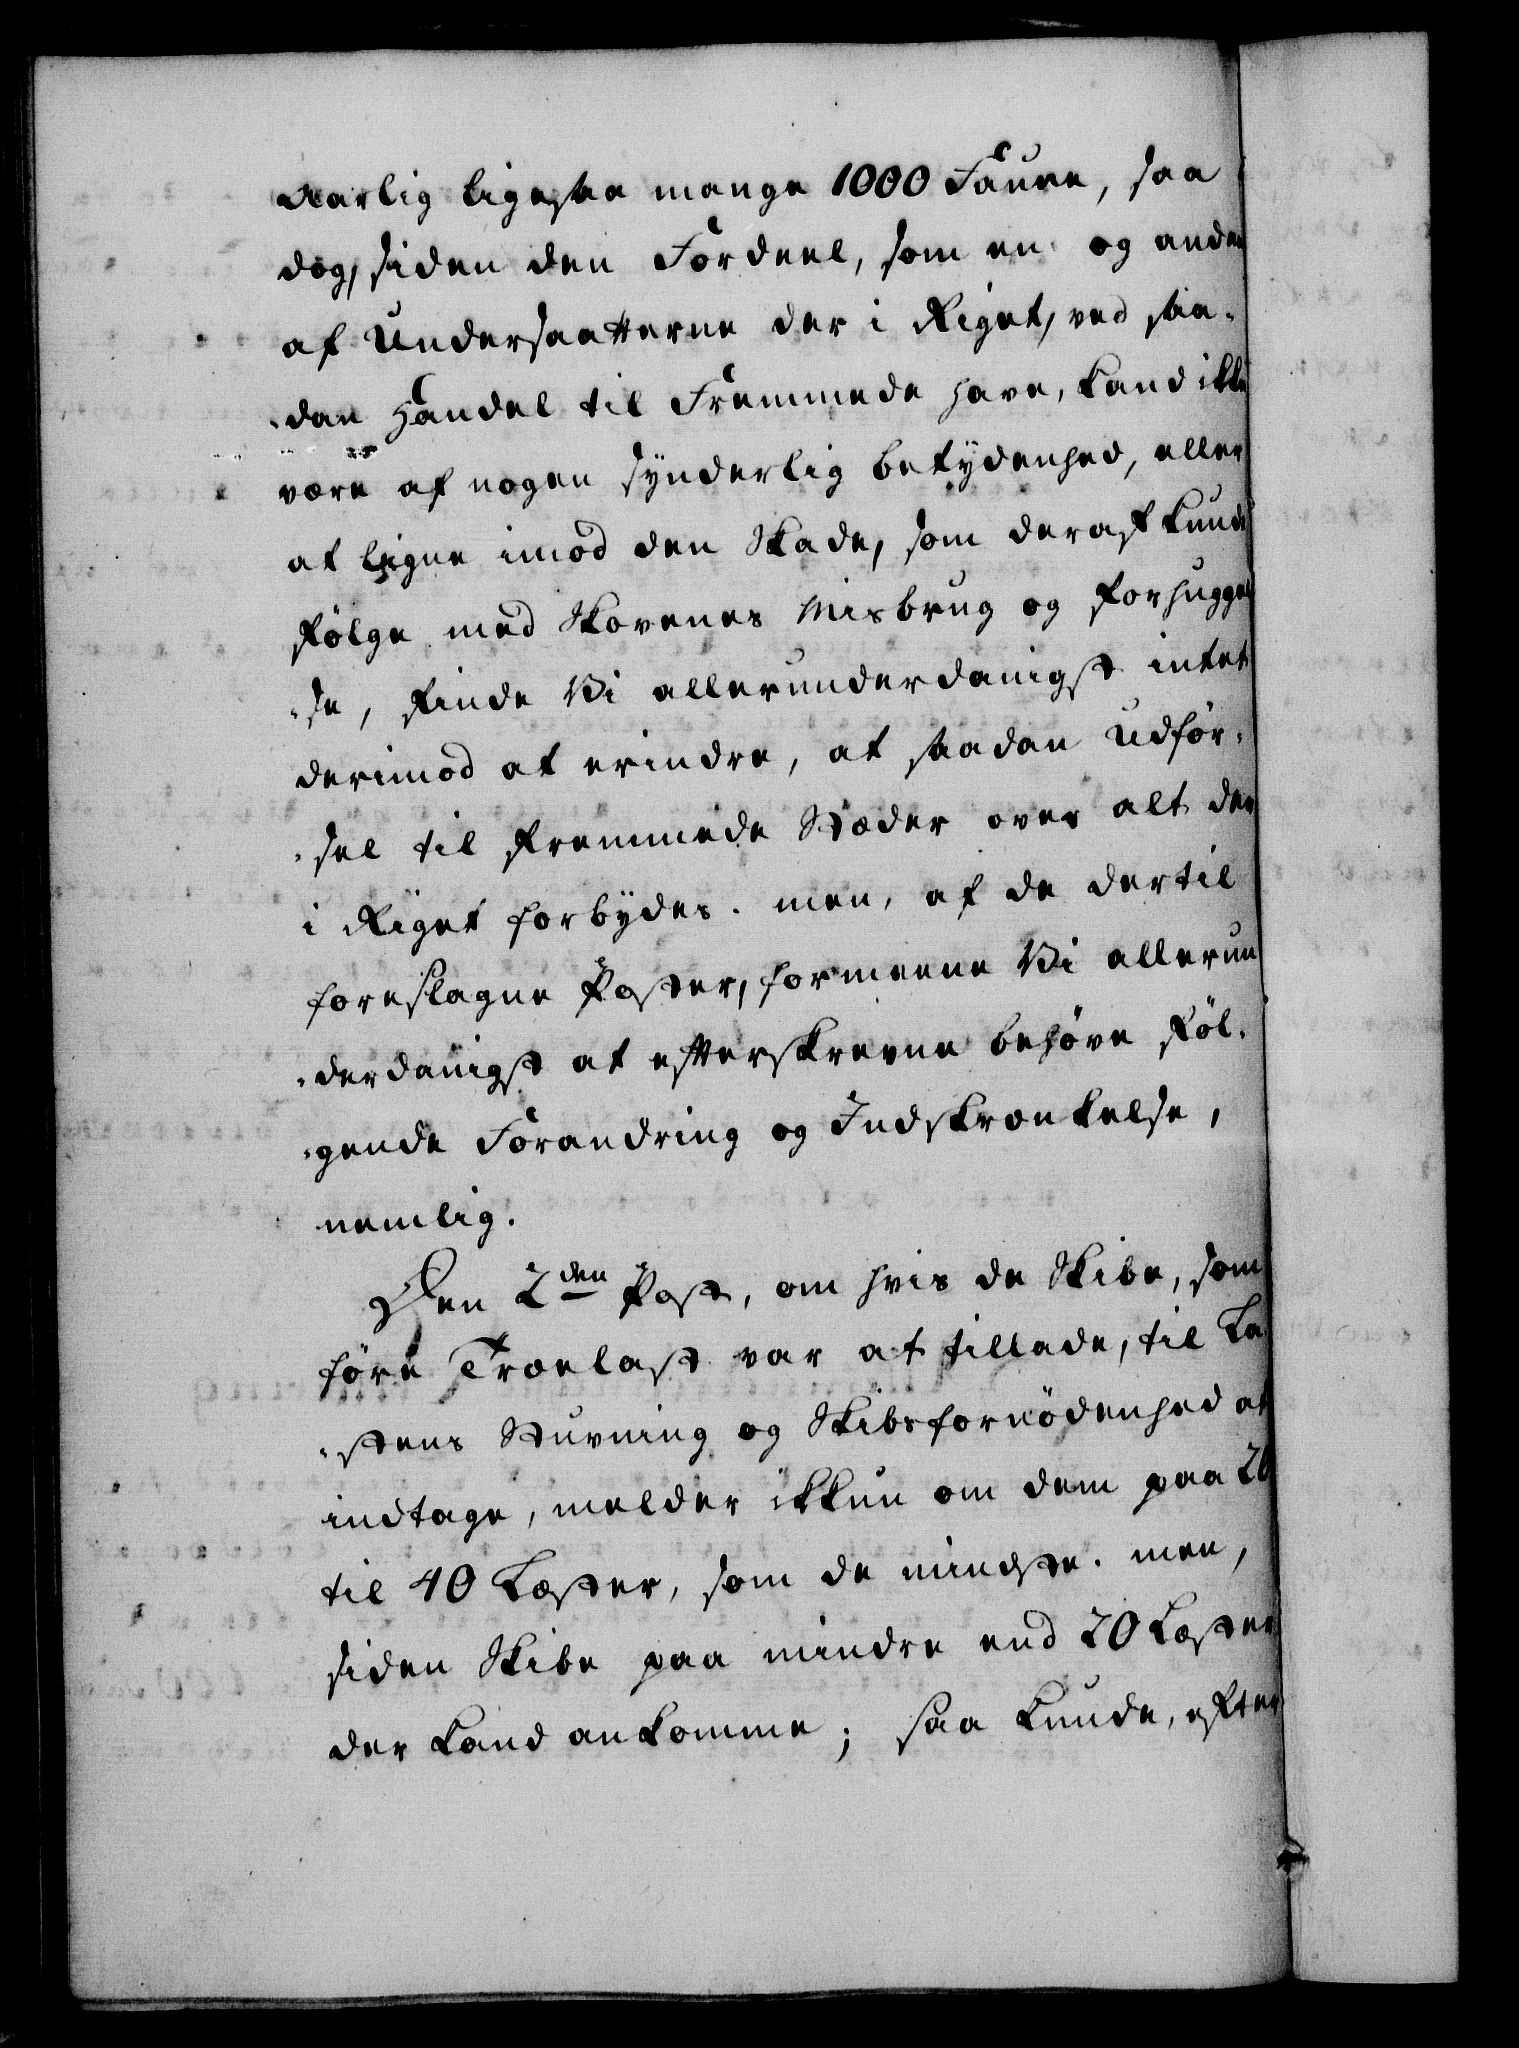 aarlig ligesaa mange 1000 Faune, saa
dog, siden den Fordeel, som en og anden
af Undersaatterne der i Riget, ved saa-
-dan Handel til Fremmede have, kand ikke
være af nogen synderlig betydenhed, eller
at ligne imod den Skade, som deraf kunde
følge med Skovenes Misbrug og forhuggel-
-se, finde Vi allerunderdanigst intet
derimod at erindre, at saadan Udför-
-sel til fremmede Stæder over alt der
i Riget forbydes. men, af de dertil
foreslagne Poster, formeene Vi allerun
-derdanigst at efterskrevne behöve föl-
-gende Forandring og Indskrænkelse,
nemlig.
Den 2den Post, om hvis de Skibe, som
före Trælast var at tillade, til La-
-stens Stuvning og Skibsfornödenhed at
indtage, melder ikkun om dem paa 20
til 40 Læster, som de mindste. men,
siden Skibe paa mindre end 20 Læster
der kand ankomme; saa kunde, efter